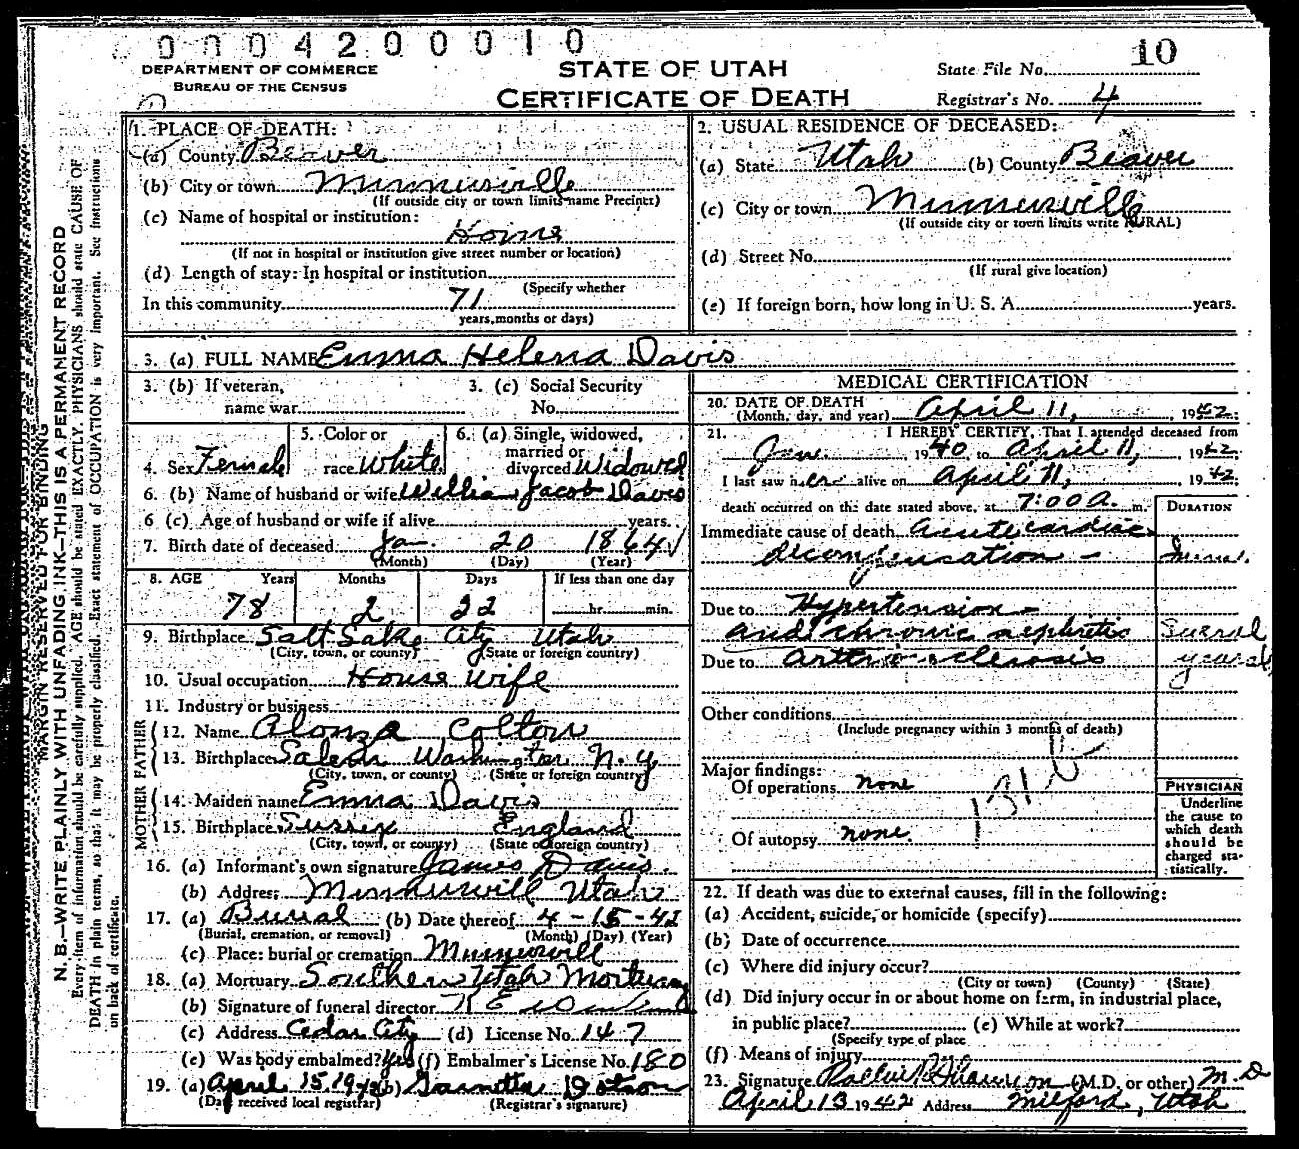 0004200010
DEPARTMENT OF COMMERCE
BUREAU OF THE CENSUS
STATE OF UTAH
CERTIFICATE OF DEATH
State File No. 10
Registrar's No. 4
MARGIN RESERVED FOR BINDING
N. B.—WRITE PLAINLY WITH UNFADING INK—THIS IS A PERMANENT RECORD
Every item of information should be carefully supplied. AGE should be stated EXACTLY. PHYSICIANS should state CAUSE OF
DEATH in plain terms, so that it may be properly classified. Exact statement of OCCUPATION is very important. See instructions
on back of certificate.
1. PLACE OF DEATH:
(a) County Beaver
(b) City or town Minersville
(If outside city or town limits name Precinct)
(c) Name of hospital or institution:
Home
(If not in hospital or institution give street number or location)
(d) Length of stay: In hospital or institution
(Specify whether
In this community 71
years, months or days)
2. USUAL RESIDENCE OF DECEASED:
(a) State Utah (b) County Beaver
(c) City or town Minersville
(If outside city or town limits write RURAL)
(d) Street No.
(If rural give location)
(e) If foreign born, how long in U. S. A. years.
3. (a) FULL NAME Emma Helena Davis
3. (b) If veteran,
name war
3. (c) Social Security
No.
4. Sex Female
5. Color or
race White
6. (a) Single, widowed,
married or
divorced Widowed
6. (b) Name of husband or wife William Jacob Davis
6 (c) Age of husband or wife if alive years.
7. Birth date of deceased Jan. 20 1864
(Month) (Day) (Year)
8. AGE Years Months Days If less than one day
78 2 22 hr. min.
9. Birthplace Salt Lake City Utah
(City, town, or county) (State or foreign country)
10. Usual occupation House Wife
11. Industry or business
FATHER
12. Name Alonza Colton
13. Birthplace Salem Washington N. Y
(City, town, or county) (State or foreign country)
MOTHER
14. Maiden name Emma Davis
15. Birthplace Sussex England
(City, town, or county) (State or foreign country)
16. (a) Informant's own signature James Davis.
(b) Address Minersvill Utah
17. (a) Burial (b) Date thereof 4-15-42
(Burial, cremation, or removal) (Month) (Day) (Year)
(c) Place: burial or cremation Minersvill
18. (a) Mortuary Southern Utah Mortuary
(b) Signature of funeral director
(c) Address Cedar City (d) License No. 147
(e) Was body embalmed? Yes (f) Embalmer's License No. 180
19. (a) April 15 1942 (b) Dotson
(Date received local registrar) (Registrar's signature)
MEDICAL CERTIFICATION
20. DATE OF DEATH
(Month, day, and year) April 11, 1942.
21. I HEREBY CERTIFY, That I attended deceased from
Jan. 1940, to April 11, 1942.
I last saw her alive on April 11, 1942.
death occurred on the date stated above, at 7:00 a. m.
DURATION
Immediate cause of death acute cardiac
decompensation -
Due to Hypertension -
and chronic nephritis Several
Due to arteriosclerosis years
Other conditions
(Include pregnancy within 3 months of death)
Major findings:
Of operations none
131
Of autopsy none.
PHYSICIAN
Underline
the cause to
which death
should be
charged sta-
tistically.
22. If death was due to external causes, fill in the following:
(a) Accident, suicide, or homicide (specify)
(b) Date of occurrence
(c) Where did injury occur?
(City or town) (County) (State)
(d) Did injury occur in or about home on farm, in industrial place,
in public place? (e) While at work?
(Specify type of place
(f) Means of injury
23. Signature (M.D. or other) M.D
April 13 1942 Address Milford, Utah